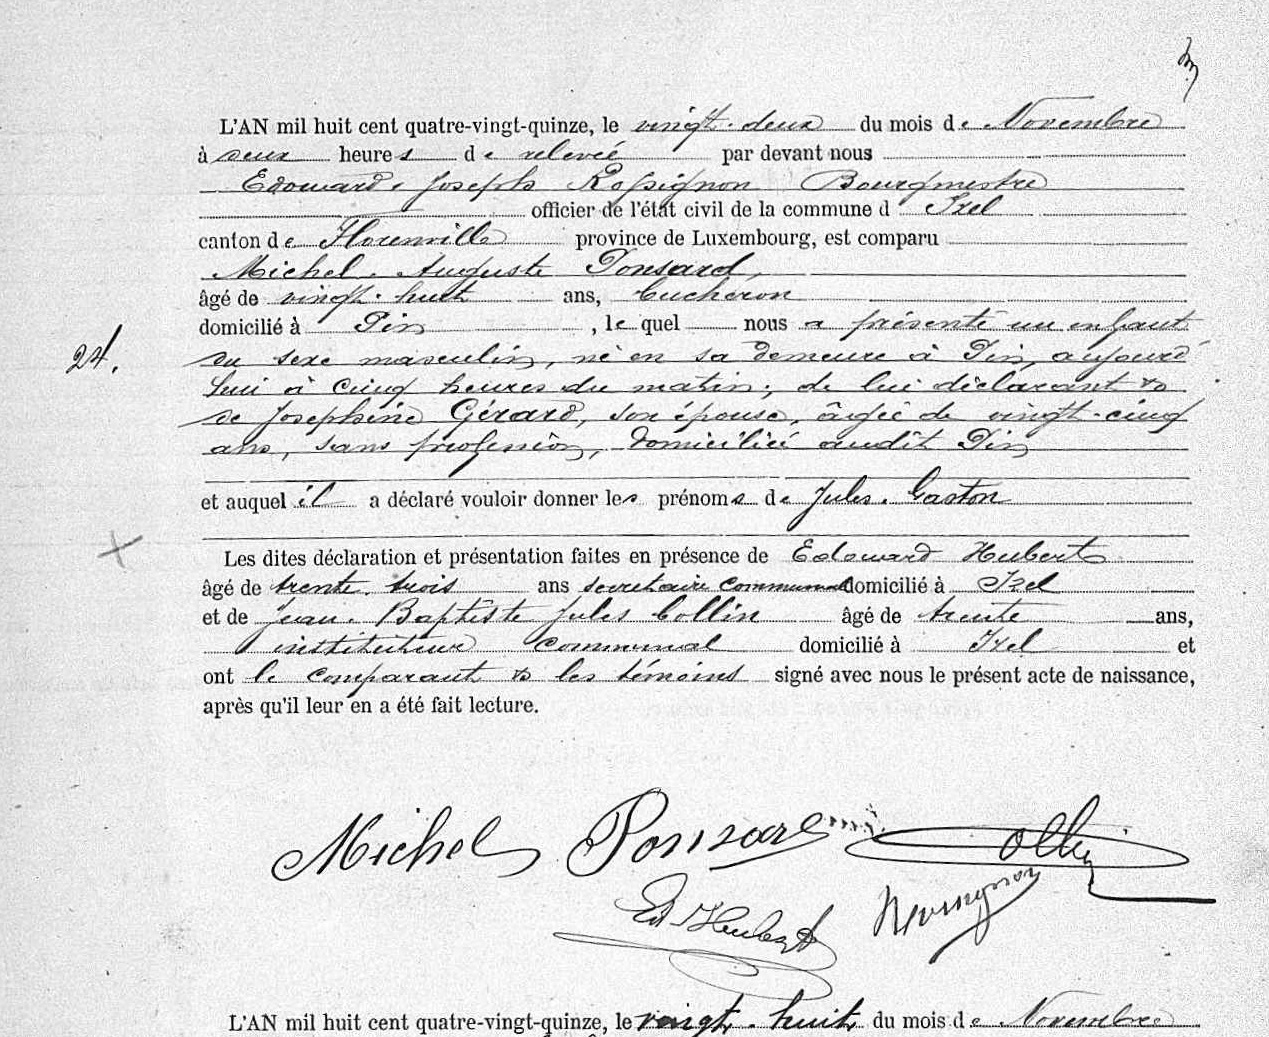 L'AN mil huit cent quatre-vingt-quinze, le vingt-deux du mois de Novembre
à deux heures de relevée par devant nous
Edouard Joseph Rossignon Bourgmestre
officier de l'état civil de la commune d Izel
canton de Florenville province de Luxembourg, est comparu
Michel Auguste Ponsard,
âgé de vingt-huit ans, bucheron
domicilié à Pin, le quel nous a présenté un enfant
24. du sexe masculin, né en sa demeure à Pin, aujourd'
hui à cinq heures du matin, de lui déclarant &
de Joséphine Gérard, son épouse, âgée de vingt-cinq
ans, sans profession, domiciliée audit Pin
et auquel il a déclaré vouloir donner les prénoms de Jules Gaston
Les dites déclaration et présentation faites en présence de Edouard Hubert
âgé de trente trois ans secrétaire communal domicilié à Izel
et de Jean Baptiste Jules Collin âgé de trente ans,
instituteur communal domicilié à Izel et
ont le comparant & les témoins signé avec nous le présent acte de naissance,
après qu'il leur en a été fait lecture.
Michel Ponsard Collin
Ed. Hubert Rossignon
L'AN mil huit cent quatre-vingt-quinze, le vingt-huit du mois de Novembre